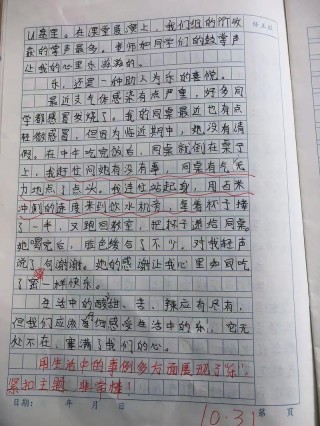 U盘里。在课堂展演上,我们组的所收
获的掌声最多。老师和同学们的鼓掌声
让我的心里乐滋滋的。
乐,还是一种助人为乐的喜悦。
最近支气体感染有点严重,好多同
学都感冒发烧了。我的同桌最近也有点
轻微感冒,但因为临近期中,她没有请
假。在中午吃完饭后,同桌就倒在桌子
上,我赶忙问她有没有事,同桌有气无
力地点了点头。我连忙站起身,用百米
冲刺的速度来到饮水机旁,拿着杯子接
了一杯,又跑回教室,把杯子递给同桌。
她喝完后,脸色缓和了不少,对我轻声
说了句谢谢。她的感谢让我心里如同吃
了蜜一样快乐。
生活中的酸甜、苦、辣应有尽有,
但我们应该细感受生活中的乐,它无
处不在,塞满了我们的心。
用生活中的事例多方面展现了"乐"
紧扣主题,非常棒!
日期: 年 月 日
10.31
第 页